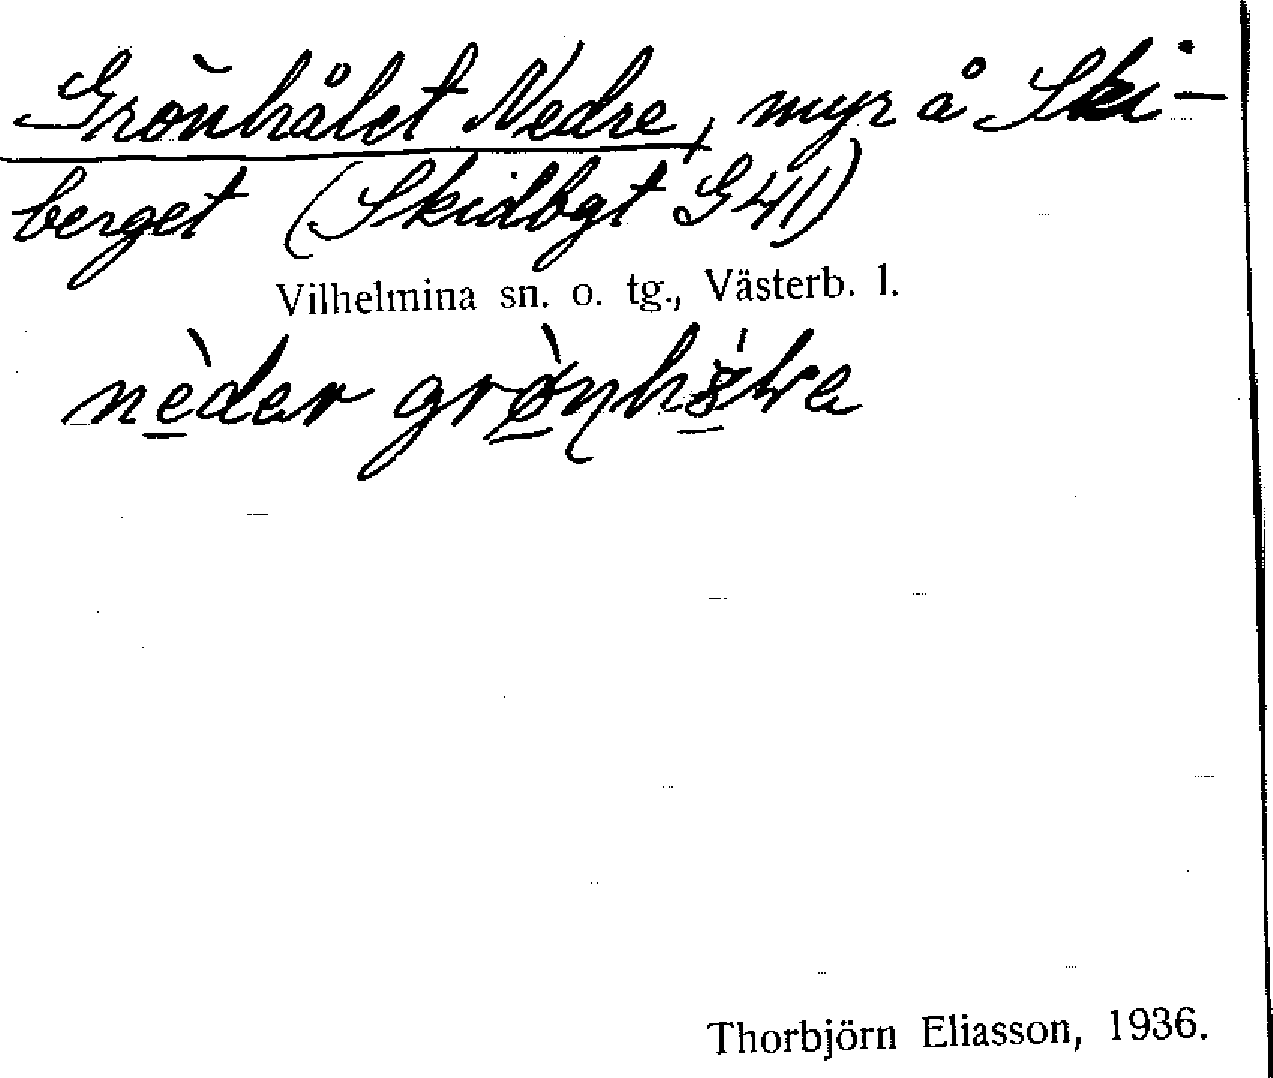 Grönhålet Nedre, myr å Ski-
berget (Skidbgt G41)
Vilhelmina sn. o. tg., Västerb. l.
nèder
Thorbjörn Eliasson, 1936.